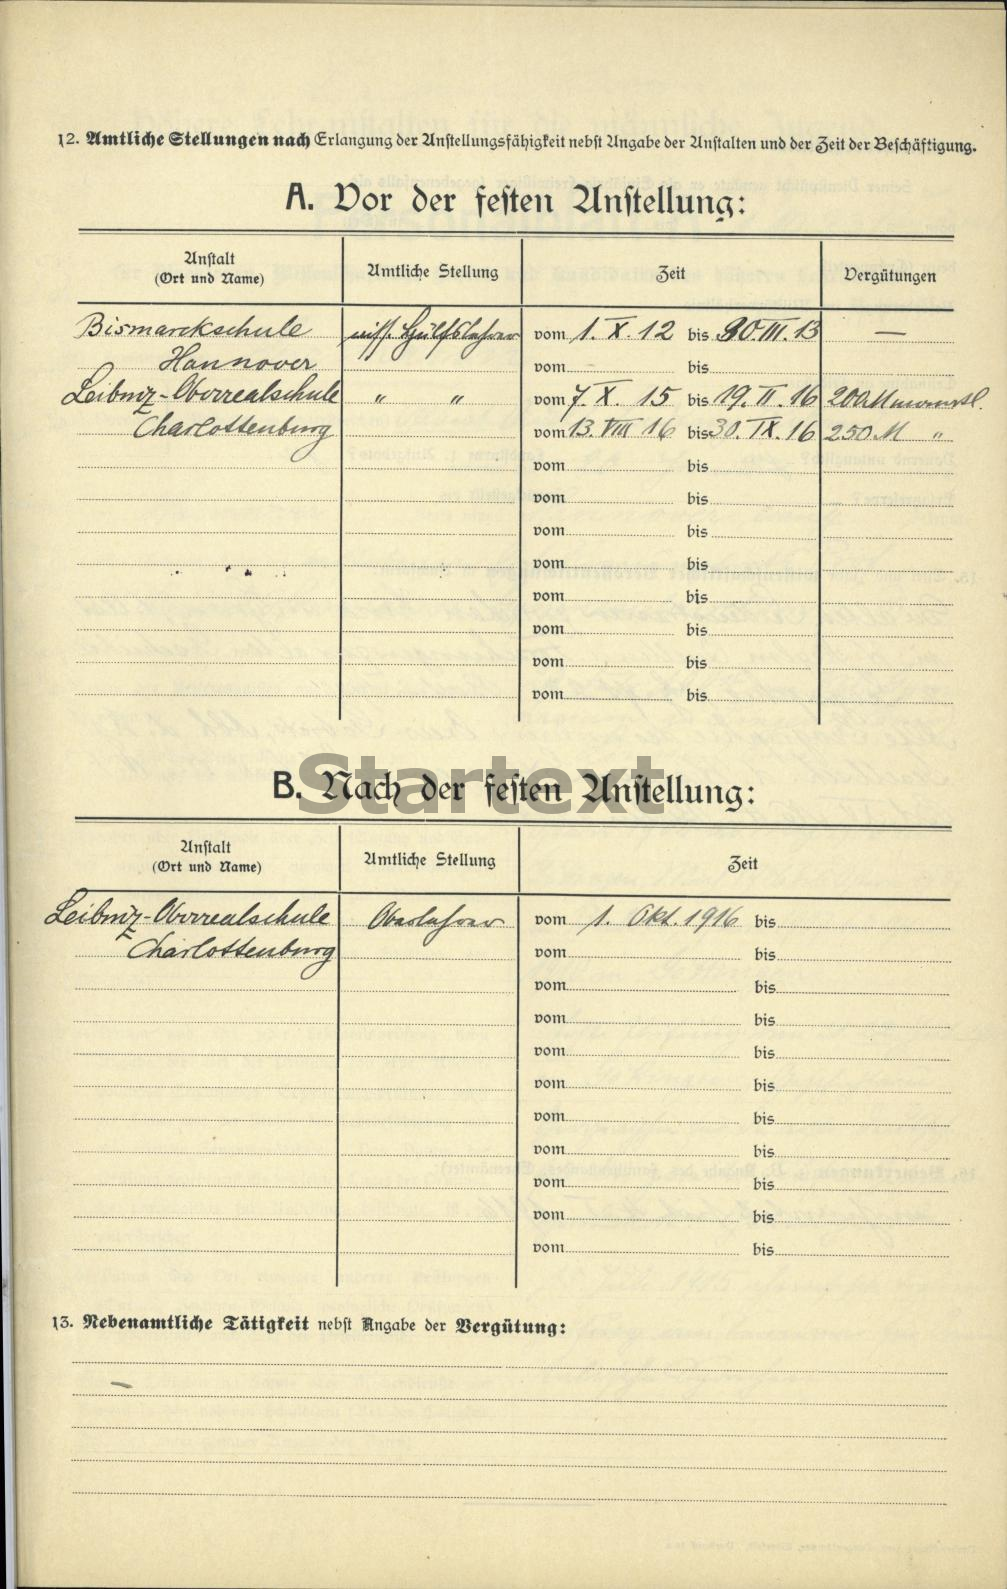 12. Amtliche Stellungen nach Erlangung der Anstellungsfähigkeit nebst Angabe der Anstalten und der Zeit der Beschäftigung.
A. Vor der festen Anstellung:
Anstalt (Ort und Name) Amtliche Stellung Zeit Vergütungen
Bismarckschule wiss. Hülfslehrer vom 1. X. 12 bis 30. III. 13 —
Hannover vom bis
Leibniz-Oberrealschule " " vom 7. X. 15 bis 19. II. 16 200 M monatl.
Charlottenburg vom 13. VIII 16 bis 30. IX. 16 250 M "
vom bis
vom bis
vom bis
vom bis
vom bis
vom bis
vom bis
vom bis
Startext
B. Nach der festen Anstellung:
Anstalt (Ort und Name) Amtliche Stellung Zeit
Leibniz-Oberrealschule Oberlehrer vom 1. Okt. 1916 bis
Charlottenburg vom bis
vom bis
vom bis
vom bis
vom bis
vom bis
vom bis
vom bis
vom bis
vom bis
13. Nebenamtliche Tätigkeit nebst Angabe der Vergütung:
—